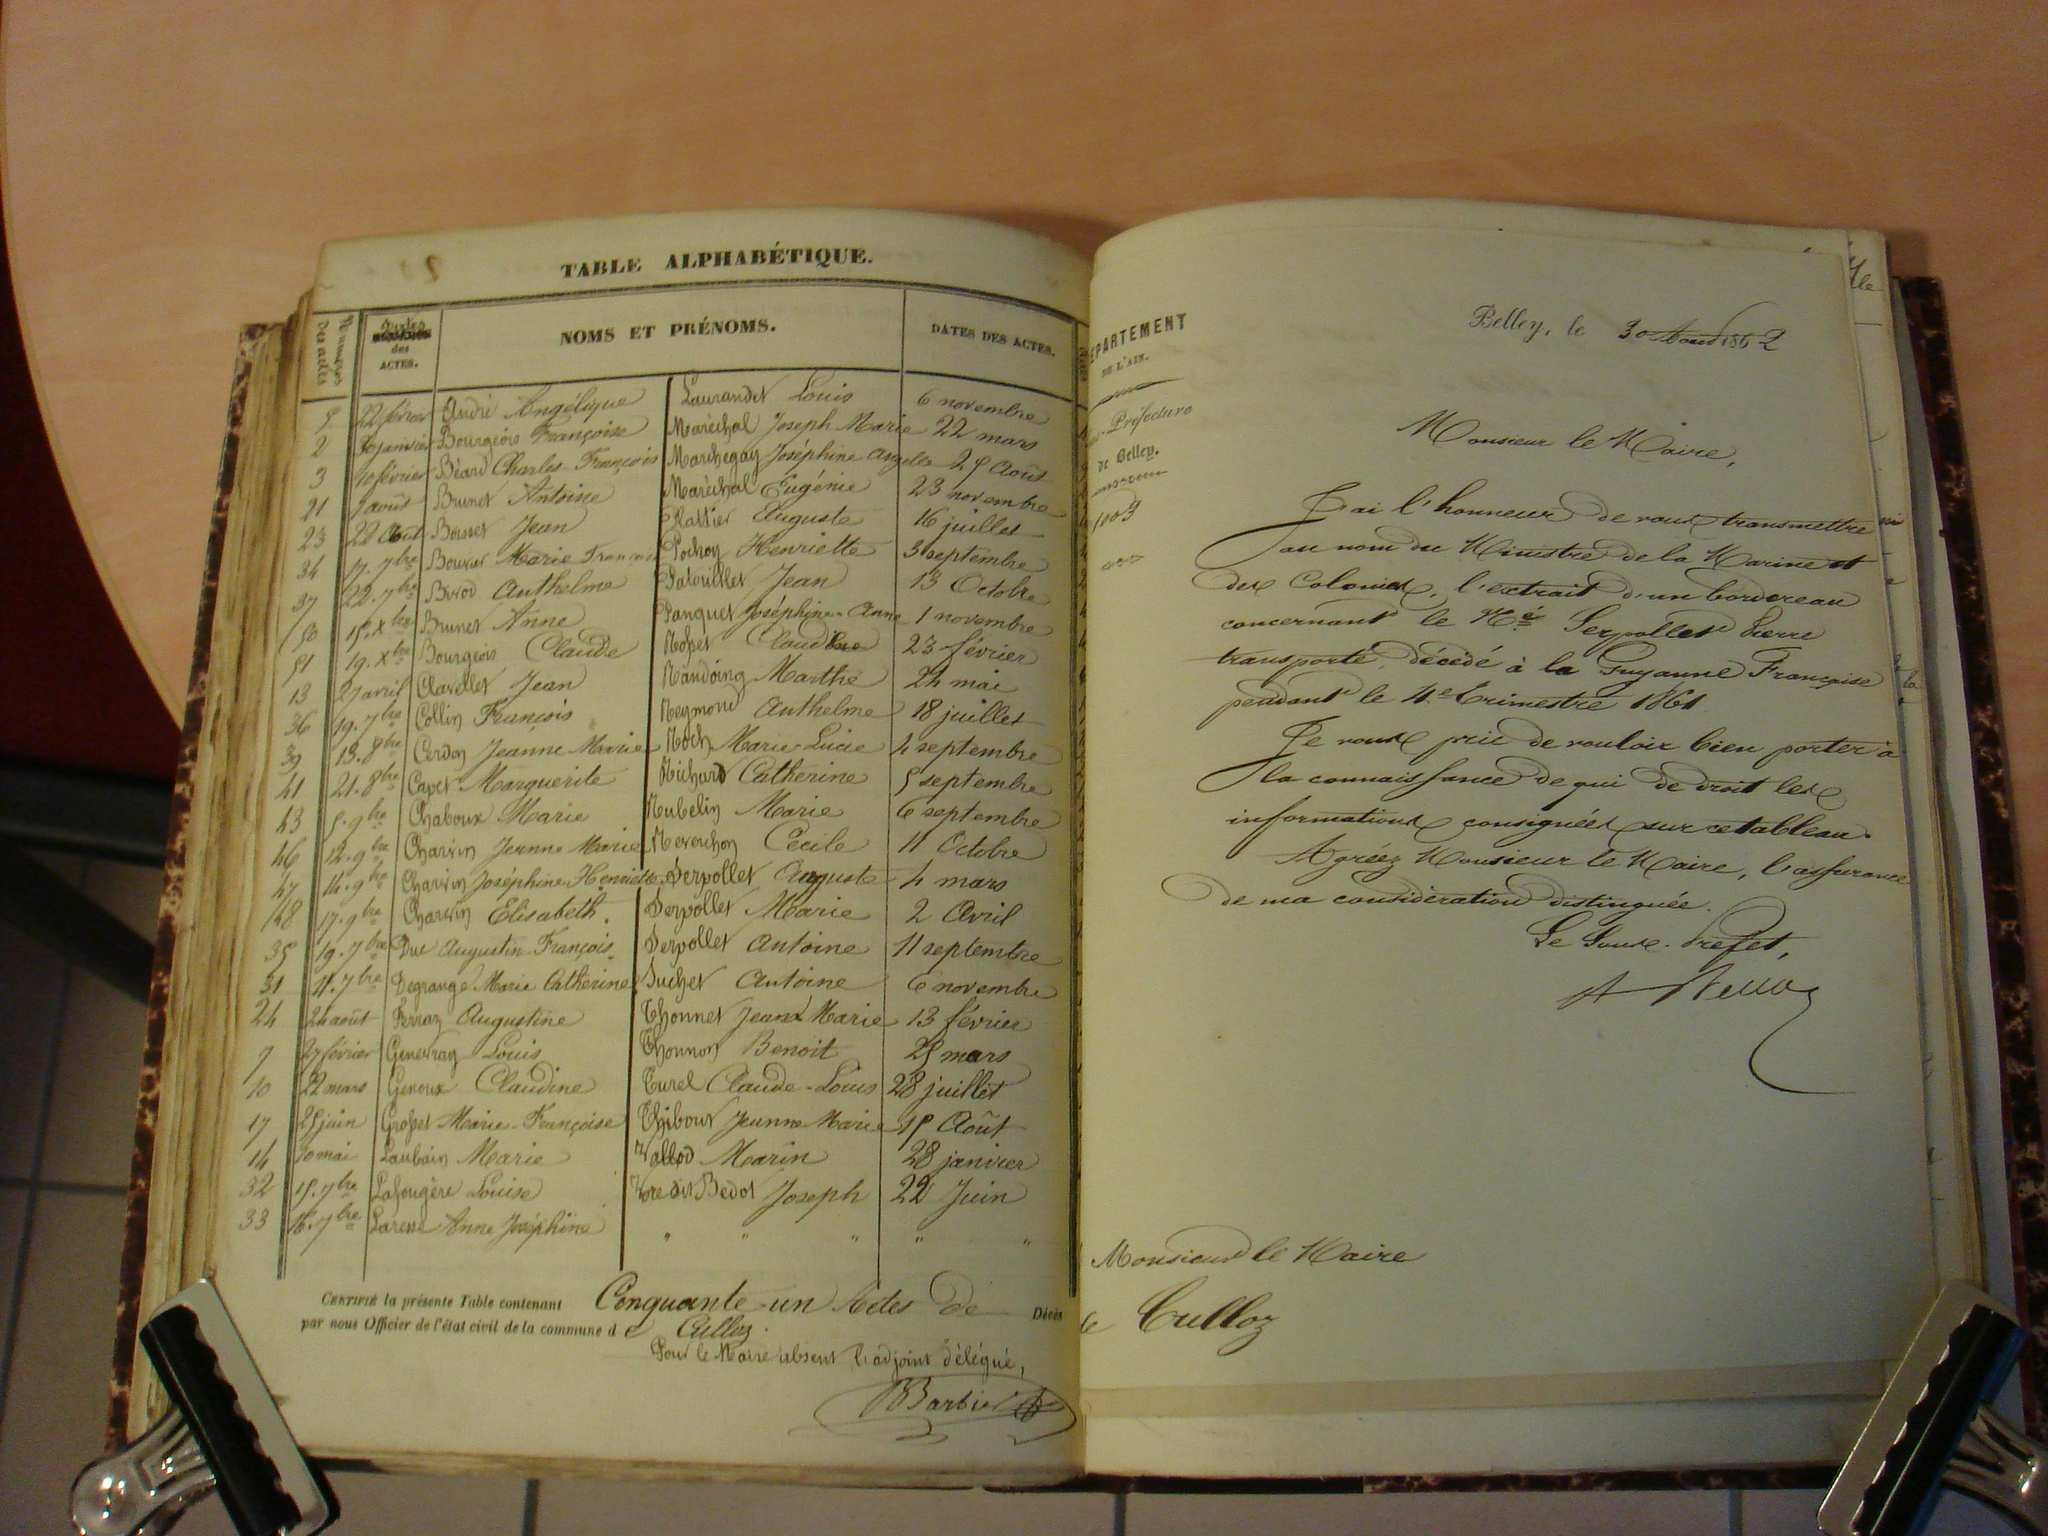 TABLE ALPHABÉTIQUE.
Numéros des actes
Dates des ACTES.
NOMS ET PRÉNOMS.
DATES DES ACTES.
5 22 février André Angélique Laurandet Louis 6 novembre
2 30 janvier Bourgeois Françoise Maréchal Joseph Marie 22 mars
3 10 février Béard Charles-François Marchegay Joséphine Angèle 25 Août
21 7 août Brunet Antoine Maréchal Eugénie 23 novembre
23 22 Août Boisset Jean Rattier Auguste 16 juillet
34 17. 7bre Bouvier Marie Françoise Pochoy Henriette 3 septembre
37 22. 7bre Brod Anthelme Patouillet Jean 13 Octobre
50 15. Xbre Brunet Anne Panguet Joséphine-Anne 1 novembre
51 19. Xbre Bourgeois Claude Rosset Claudine 23 février
13 27 avril Clavellet Jean Randoing Marthe 24 mai
36 19. 7bre Collin François Reymond Anthelme 18 juillet
39 13. 8bre Cerdon Jeanne Marie Roch Marie-Lucie 4 septembre
41 21. 8bre Capet Marguerite Richard Catherine 5 septembre
43 5. 9bre Chaboux Marie Rubelin Marie 6 septembre
46 12. 9bre Charvin Jeanne Marie Reverchon Cécile 11 Octobre
47 14. 9bre Charvin Joséphine-Henriette Serpollet Auguste 4 mars
48 17. 9bre Charvin Elisabeth. Serpollet Marie 2 Avril
35 19. 7bre Duc Augustin François. Serpollet Antoine 11 septembre
31 11. 7bre Degrange Marie Catherine Suchet Antoine 6 novembre
24 24 août Ferraz Augustine Thonnet Jeanne Marie 13 février
9 27 février Genevray Louis Thonnon Benoit 25 mars
10 22 mars Genoux Claudine Turel Claude-Louis 28 juillet
17 25 juin Grosset Marie-Françoise Thibout Jeanne Marie 15 Août
14 10 mai Laubain Marie Vallod Marin 28 janvier
32 15. 7bre Lafougère Louise Vore dit Bedot Joseph 22 Juin
33 16. 7bre Larene Anne Joséphine " " " " "
CERTIFIÉ la présente Table contenant Cinquante-un Actes de Décès
par nous Officier de l'état civil de la commune de Culloz.
Pour le Maire absent l'adjoint délégué,
Barbier
DÉPARTEMENT
DE L'AIN.
Sous-Préfecture
de Belley.
1003
Belley, le 30 Août 1862
Monsieur le Maire,
J'ai l'honneur de vous transmettre
au nom du Ministre de la Marine et
des Colonies, l'extrait d'un bordereau
concernant le Né Serpollet Pierre
transporté, décédé à la Guyanne Française
pendant le 4e trimestre 1861.
Je vous prie de vouloir bien porter à
la connaissance de qui de droit les
informations consignées sur ce tableau.
Agréez Monsieur le Maire, l'assurance
de ma considération distinguée.
Le Sous-Préfet,
Monsieur le Maire
de Culloz